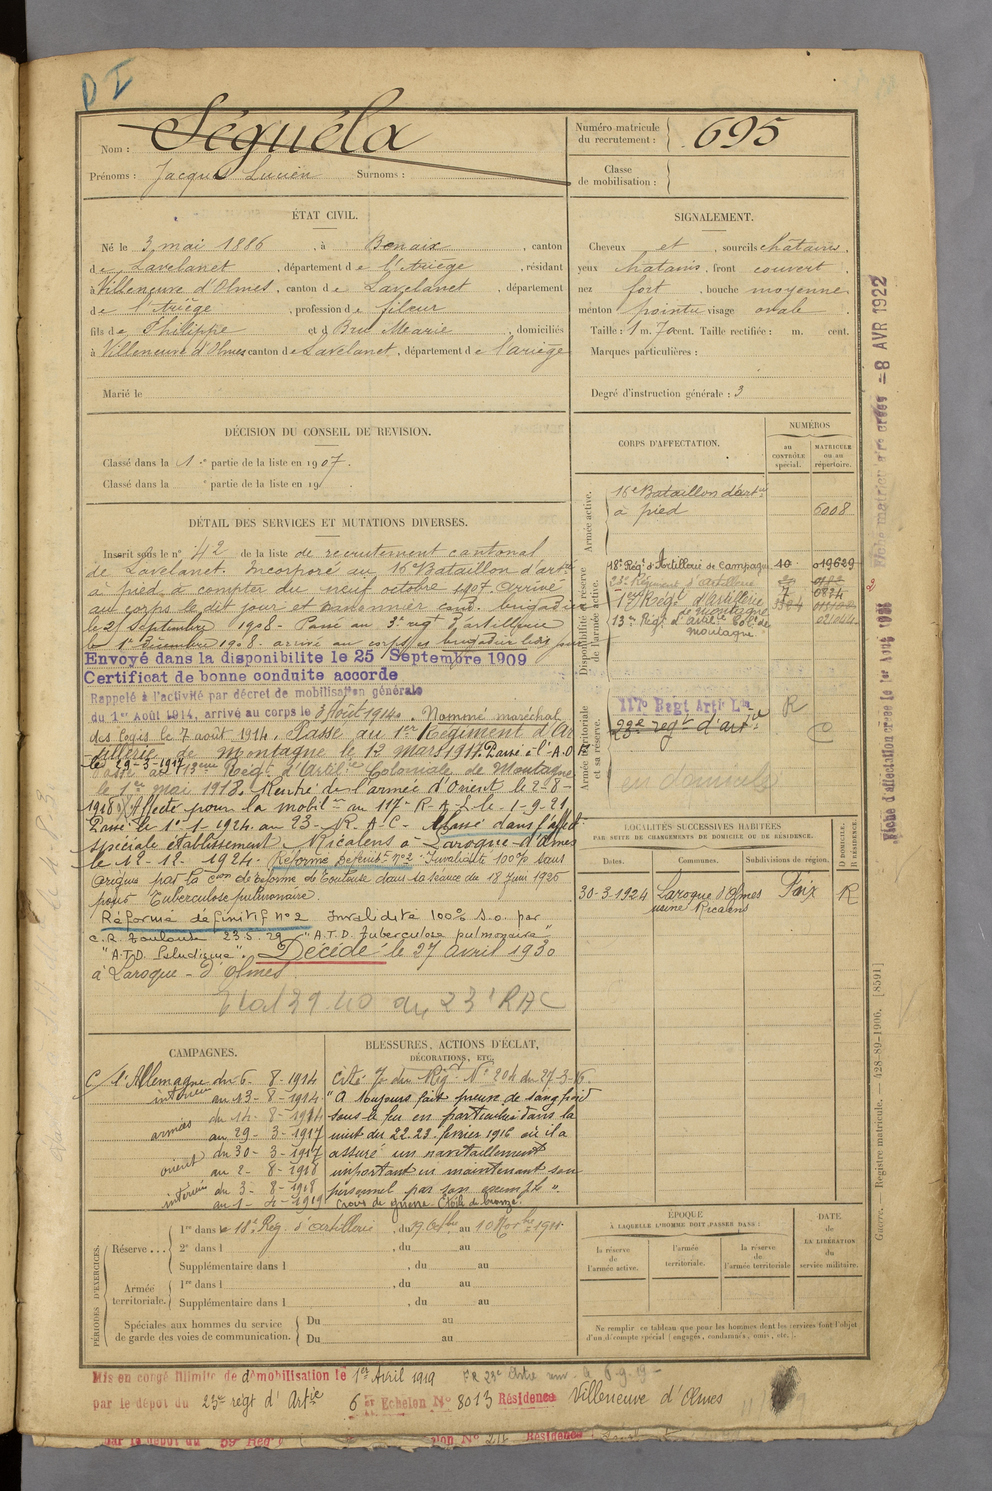 D I
Nom : Séguéla
Prénoms : Jacques Lucien Surnoms :
Numéro matricule du recrutement : 695
Classe de mobilisation :
ÉTAT CIVIL.
Né le 3 mai 1886, à Benaix, canton
de Lavelanet, département de l'Ariège, résidant
à Villeneuve d'Olmes, canton de Lavelanet, département
de l'Ariège, profession de fileur
fils de Philippe et de Bru Marie, domiciliés
à Villeneuve d'Olmes canton de Lavelanet, département de l'ariège
Marié le
SIGNALEMENT.
Cheveux et, sourcils chatains.
yeux chatains, front couvert
nez fort, bouche moyenne
menton pointu visage ovale
Taille : 1 m. 70 cent. Taille rectifiée : m. cent.
Marques particulières :
Degré d'instruction générale : 3
DÉCISION DU CONSEIL DE REVISION.
Classé dans la 1re partie de la liste en 1907.
Classé dans la e partie de la liste en 19
DÉTAIL DES SERVICES ET MUTATIONS DIVERSES.
Inscrit sous le n° 42 de la liste de recrutement cantonal
de Lavelanet. Incorporé au 16e Bataillon d'artie
à pied à compter du neuf octobre 1907. Arrivé
au corps le dit jour et canonnier cond. brigadier
le 21 Septembre 1908. Passé au 3e regt d'artillerie
le 1er Décembre 1908. arrivé au corps es brigadier ledit jour
Envoyé dans la disponibilite le 25 Septembre 1909
Certificat de bonne conduite accorde
Rappelé à l'activité par décret de mobilisation générale
du 1er Août 1914, arrivé au corps le 3 Août 1914. Nommé maréchal
des logis le 7 août 1914. Passe au 1er Régiment d'Ar
tillerie de Montagne le 12 mars 1917. Passé à l'A.O
le 29-3-1917
Passé au 13eme Rég. d'Artilie Coloniale de Montagne
le 1er mai 1918. Rentré de l'armée d'Orient le 2-8-
1918. Affecté pour la mobilon au 117e R.A.L. le 1-9-21
Passé le 1er-1-1924 au 23e R.A.C. Classé dans l'affon
spéciale établissement Ricalens à Laroque-d'Olmes
le 12-12-1924. Réforme Définit. n°2. Invalidité 100% sans
origine par la Con de réforme de Toulouse dans sa séance du 18 Juin 1926
pour Tuberculose pulmonaire.
Réformé définitif n°2 Invalidité 100% s.o. par
C.R. Toulouse 23.5.29 "A.T.D. Tuberculose pulmonaire"
"A.T.D. Paludisme". Décédé le 27 avril 1930
à Laroque-d'Olmes
Etat 39.40 du 23e RAC
CORPS D'AFFECTATION.
NUMÉROS
au CONTRÔLE spécial.
MATRICULE ou au répertoire.
Armée active.
16e Bataillon d'artie
à pied 6008
Disponibilité et réserve de l'armée active.
18e Régt d'Artillerie de Campagne 40 019629
23e Régiment d'artillerie
1er Régt d'Artillerie
de montagne
13e Régt d'artie Cole de
montagne
Armée territoriale et sa réserve.
117e Régt Artie Lde R
23e regt d'artie
en domicile
LOCALITÉS SUCCESSIVES HABITÉES
PAR SUITE DE CHANGEMENTS DE DOMICILE OU DE RÉSIDENCE.
Dates. Communes. Subdivisions de région. D DOMICILE. R RÉSIDENCE.
30-3-1924 Laroque d'Olmes Foix R
usine Ricalens
CAMPAGNES.
C/ l'Allemagne du 6-8-1914
intérieur au 13-8-1914
du 14-8-1914
armées au 29-3-1917
du 30-3-1917
orient au 2-8-1918
intérieur du 3-8-1918
au 1-4-1919
BLESSURES, ACTIONS D'ÉCLAT,
DÉCORATIONS, ETC.
Cité O. du Rég. N° 204 du 27-3-16
"A toujours fait preuve de sang froid
sous le feu en particulier dans la
nuit du 22-23 février 1916 où il a
assuré un ravitaillement
important en maintenant son
personnel par son exemple".
Croix de guerre. Etoile de bronze.
PÉRIODES D'EXERCICES.
Réserve... 1re dans le 18e Rég. d'Artillerie, du 19 Octbre au 10 Novbre 1911
2e dans l , du au
Supplémentaire dans l , du au
Armée territoriale. 1re dans l , du au
Supplémentaire dans l , du au
Spéciales aux hommes du service Du au
de garde des voies de communication. Du au
ÉPOQUE
À LAQUELLE L'HOMME DOIT PASSER DANS :
la réserve de l'armée active.
l'armée territoriale.
la réserve de l'armée territoriale
DATE de LA LIBÉRATION du service militaire.
Ne remplir ce tableau que pour les hommes dont les services font l'objet
d'un décompte spécial (engagés, condamnés, omis, etc.).
Mis en congé illimité de démobilisation le 1er Avril 1919
par le dépôt du 23e regt d'Artie 6e Echelon N° 8013 Résidence Villeneuve d'Olmes
Guerre. — Registre matricule. — 128-89-1906. [8591]
Fiche matricule créée = 8 AVR 1922
Fiche d'affectation créée le 1er Août